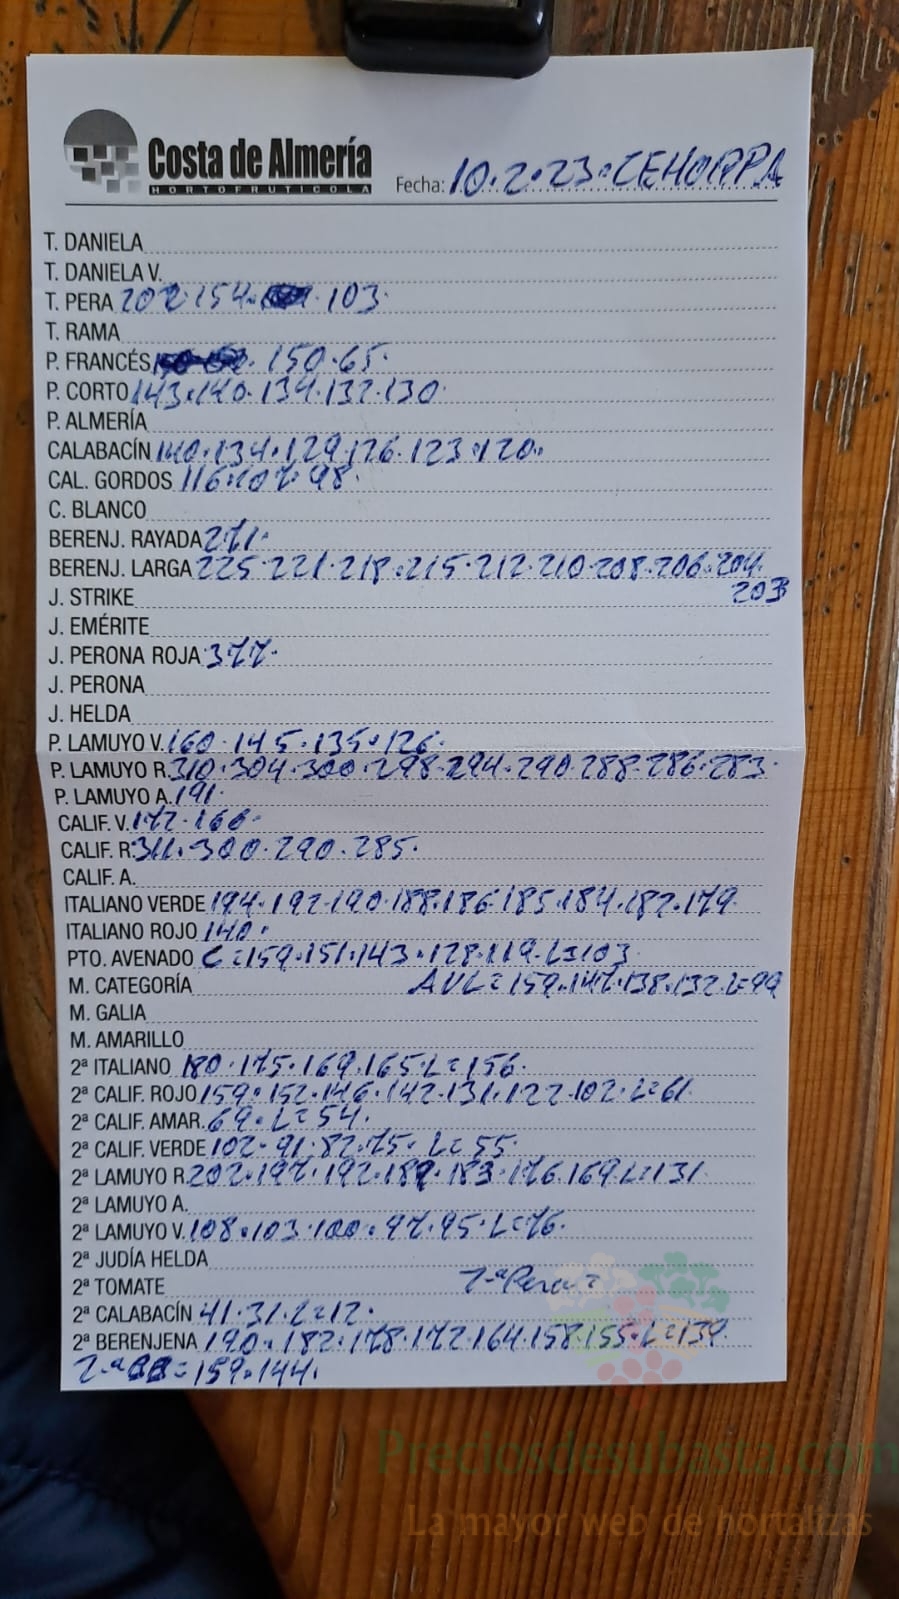 Costa de Almería
HORTOFRUTICOLA
Fecha: 10.2.23.CEHORPPA
T. DANIELA
T. DANIELA V.
T. PERA 202.154. 103.
T. RAMA
P. FRANCÉS . 150.65.
P. CORTO 143.140.134.132.130
P. ALMERÍA
CALABACÍN 140.134.129.126.123.120.
CAL. GORDOS 116.107.98.
C. BLANCO
BERENJ. RAYADA 271.
BERENJ. LARGA 225.221.218.215.212.210.208.206.204.
203
J. STRIKE
J. EMÉRITE
J. PERONA ROJA 377.
J. PERONA
J. HELDA
P. LAMUYO V. 160.145.135.126.
P. LAMUYO R. 310.304.300.298.294.290.288.286.283.
P. LAMUYO A. 191.
CALIF. V. 172.166.
CALIF. R. 311.300.290.285.
CALIF. A.
ITALIANO VERDE 194.192.190.188.186.185.184.182.179.
ITALIANO ROJO 140.
PTO. AVENADO C=159.151.143.128.119.L=103
M. CATEGORÍA AVL=159.147.138.132.L=99
M. GALIA
M. AMARILLO
2ª ITALIANO 180.175.169.165.L=156.
2ª CALIF. ROJO 159.152.146.142.131.122.102.L=61.
2ª CALIF. AMAR. 69.L=54.
2ª CALIF. VERDE 102.91.82.75.L=55.
2ª LAMUYO R. 202.197.192.189.183.176.169.L=131.
2ª LAMUYO A.
2ª LAMUYO V. 108.103.100.97.95.L=76.
2ª JUDÍA HELDA
2ª TOMATE 2-ª Pera=
2ª CALABACÍN 41.31.L=12.
2ª BERENJENA 190.182.178.172.164.158.155.L=139.
2-ª BB=159.144.
Preciosdesubasta.com
La mayor web de hortalizas